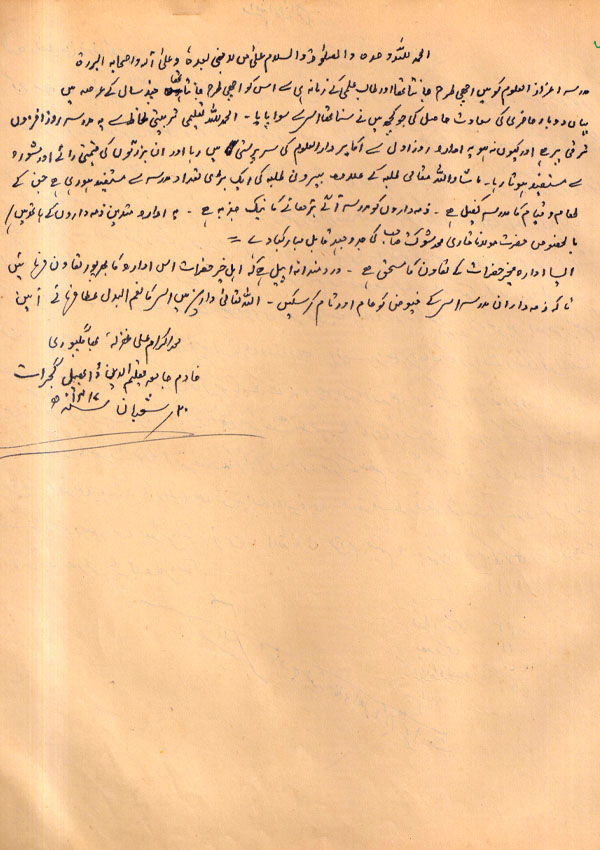 الحمد للہ وحدہ والصلوٰۃ والسلام علیٰ من لا نبی بعدہ وعلیٰ آلہ واصحابہ البررۃ
مدرسہ اعزاز العلوم کو میں اچھی طرح جانتا تھا اور طالب علمی کے زمانہ ہی سے اس کو اچھی طرح جانتا تھا چند سال کے عرصہ میں
یہاں دوبارہ حاضری کی سعادت حاصل کی جو کچھ میں نے سنا تھا اس سے سوا پایا - الحمد للہ تعلیمی تربیتی لحاظ سے یہ مدرسہ روز افزوں
ترقی پر ہے اور کیوں نہ ہو یہ ادارہ روز اول سے اکابر دار العلوم کی سرپرستی میں رہا اور ان بزرگوں کی قیمتی رائے اور مشورہ
سے مستفید ہوتا رہا - ماشاء اللہ مقامی طلبہ کے علاوہ بیرونی طلبہ کی ایک بڑی تعداد مدرسہ سے مستفید ہو رہی ہے جن کے
طعام و قیام کا مدرسہ کفیل ہے - ذمہ داروں کو مدرسہ آگے بڑھانے کا نیک جذبہ ہے - یہ ادارہ متدین ذمہ داروں کے ہاتھ میں ہے
بالخصوص حضرت مولانا قاری محمد شوکت صاحب کی جدوجہد قابل مبارکباد ہے =
ایسا ادارہ مخیر حضرات کے تعاون کا مستحق ہے - دردمندانہ اپیل ہے کہ اہل خیر حضرات اس ادارہ کا بھرپور تعاون فرمائیں
تاکہ ذمہ داران مدرسہ اس کے فیوض کو عام اور تام کر سکیں - اللہ تعالیٰ دارین میں اس کا نعم البدل عطا فرمائے آمین
محمد اکرام علی غفرلہ بھاگلپوری
خادم جامعہ تعلیم الدین ڈابھیل گجرات
۳۰ شعبان